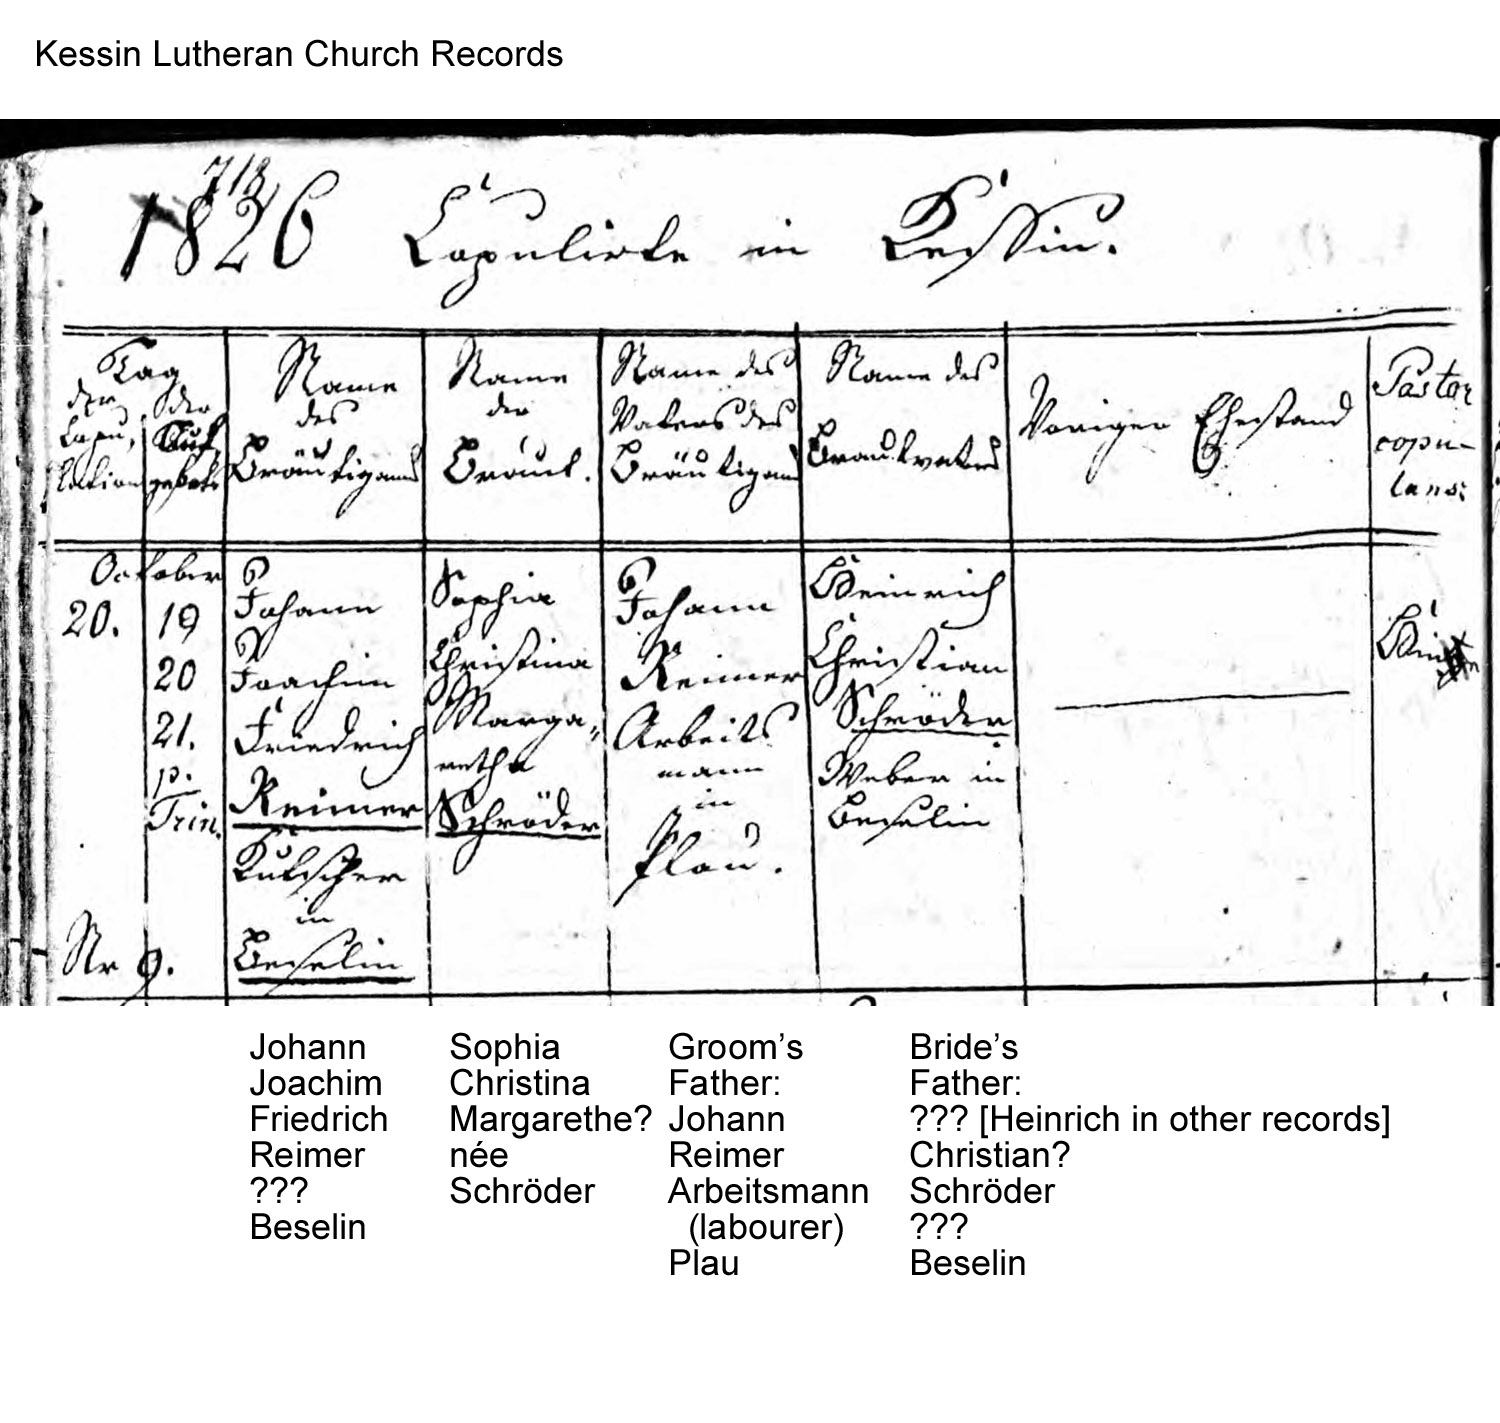 Kessin Lutheran Church Records
718
1826 Copulirte in Kessin.
Tag
der Copu, lation
der Auf gebote
Name des Bräutigams
Name der Braut.
Name des Vaters des Bräutigams
Name des Brautvaters
Voriger Ehestand
Pastor copu- lans:
October
20.
19
20
21.
p.
Trin.
Nr 9.
Johann
Joachim
Friedrich
Reimer
Kutscher
in
Beselin
Sophia
Christina
Marga,
retha
Schröder
Johann
Reimer
Arbeits
mann
in
Plau.
Heinrich
Christian
Schröder
Weber in
Beselin
Johann
Joachim
Friedrich
Reimer
???
Beselin
Sophia
Christina
Margarethe?
née
Schröder
Groom's
Father:
Johann
Reimer
Arbeitsmann
(labourer)
Plau
Bride's
Father:
??? [Heinrich in other records]
Christian?
Schröder
???
Beselin